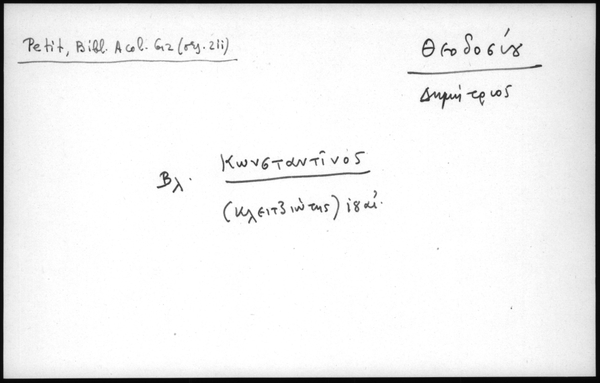 Petit, Bibl. Acol. Gr (σελ. 2ii)
Θεοδοσίου
Δημήτριος
Βλ. Κωνσταντῖνος
(Κλειτζιώτης) ιϛ αἰ.